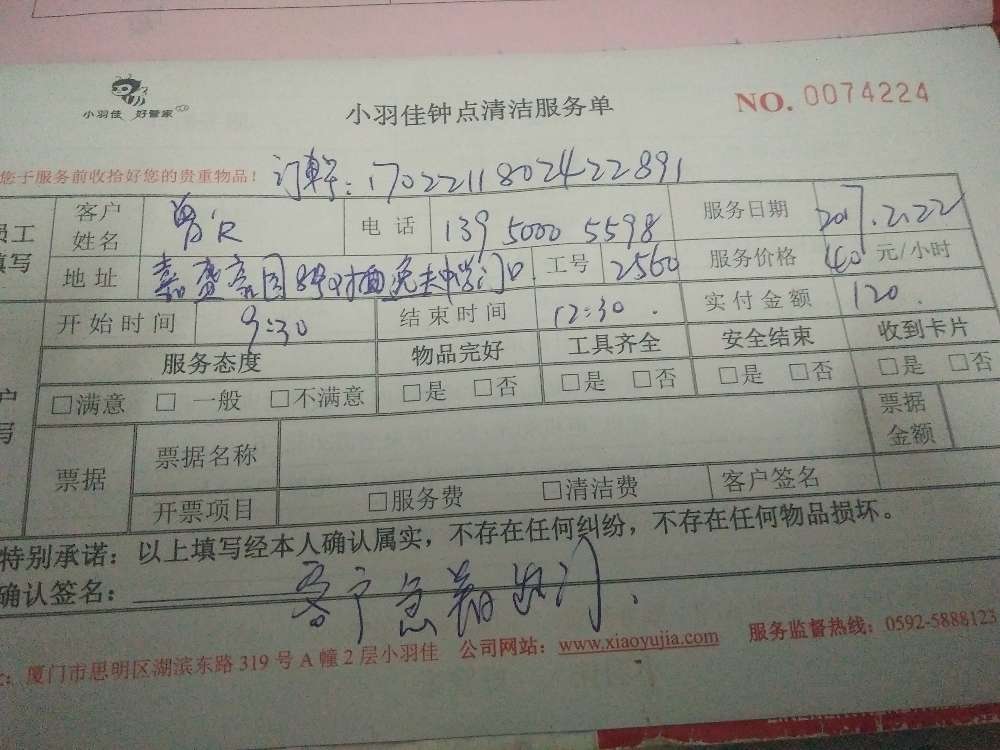 小羽佳 好管家
小羽佳钟点清洁服务单
NO. 0074224
您于服务前收拾好您的贵重物品！
订单: 1702211802422891
员工填写 客户姓名 电话 139 5000 5598 服务日期 2017.2.22
地址 工号 2560 服务价格 40 元/小时
开始时间 9:30 结束时间 12:30. 实付金额 120.
服务态度 物品完好 工具齐全 安全结束 收到卡片
□满意 □一般 □不满意 □是 □否 □是 □否 □是 □否 □是 □否
户写 票据 票据名称 票据金额
开票项目 □服务费 □清洁费 客户签名
特别承诺：以上填写经本人确认属实，不存在任何纠纷，不存在任何物品损坏。
确认签名： 客户急着出门、
厦门市思明区湖滨东路 319 号 A 幢 2 层小羽佳 公司网站：www.xiaoyujia.com 服务监督热线：0592-5888123